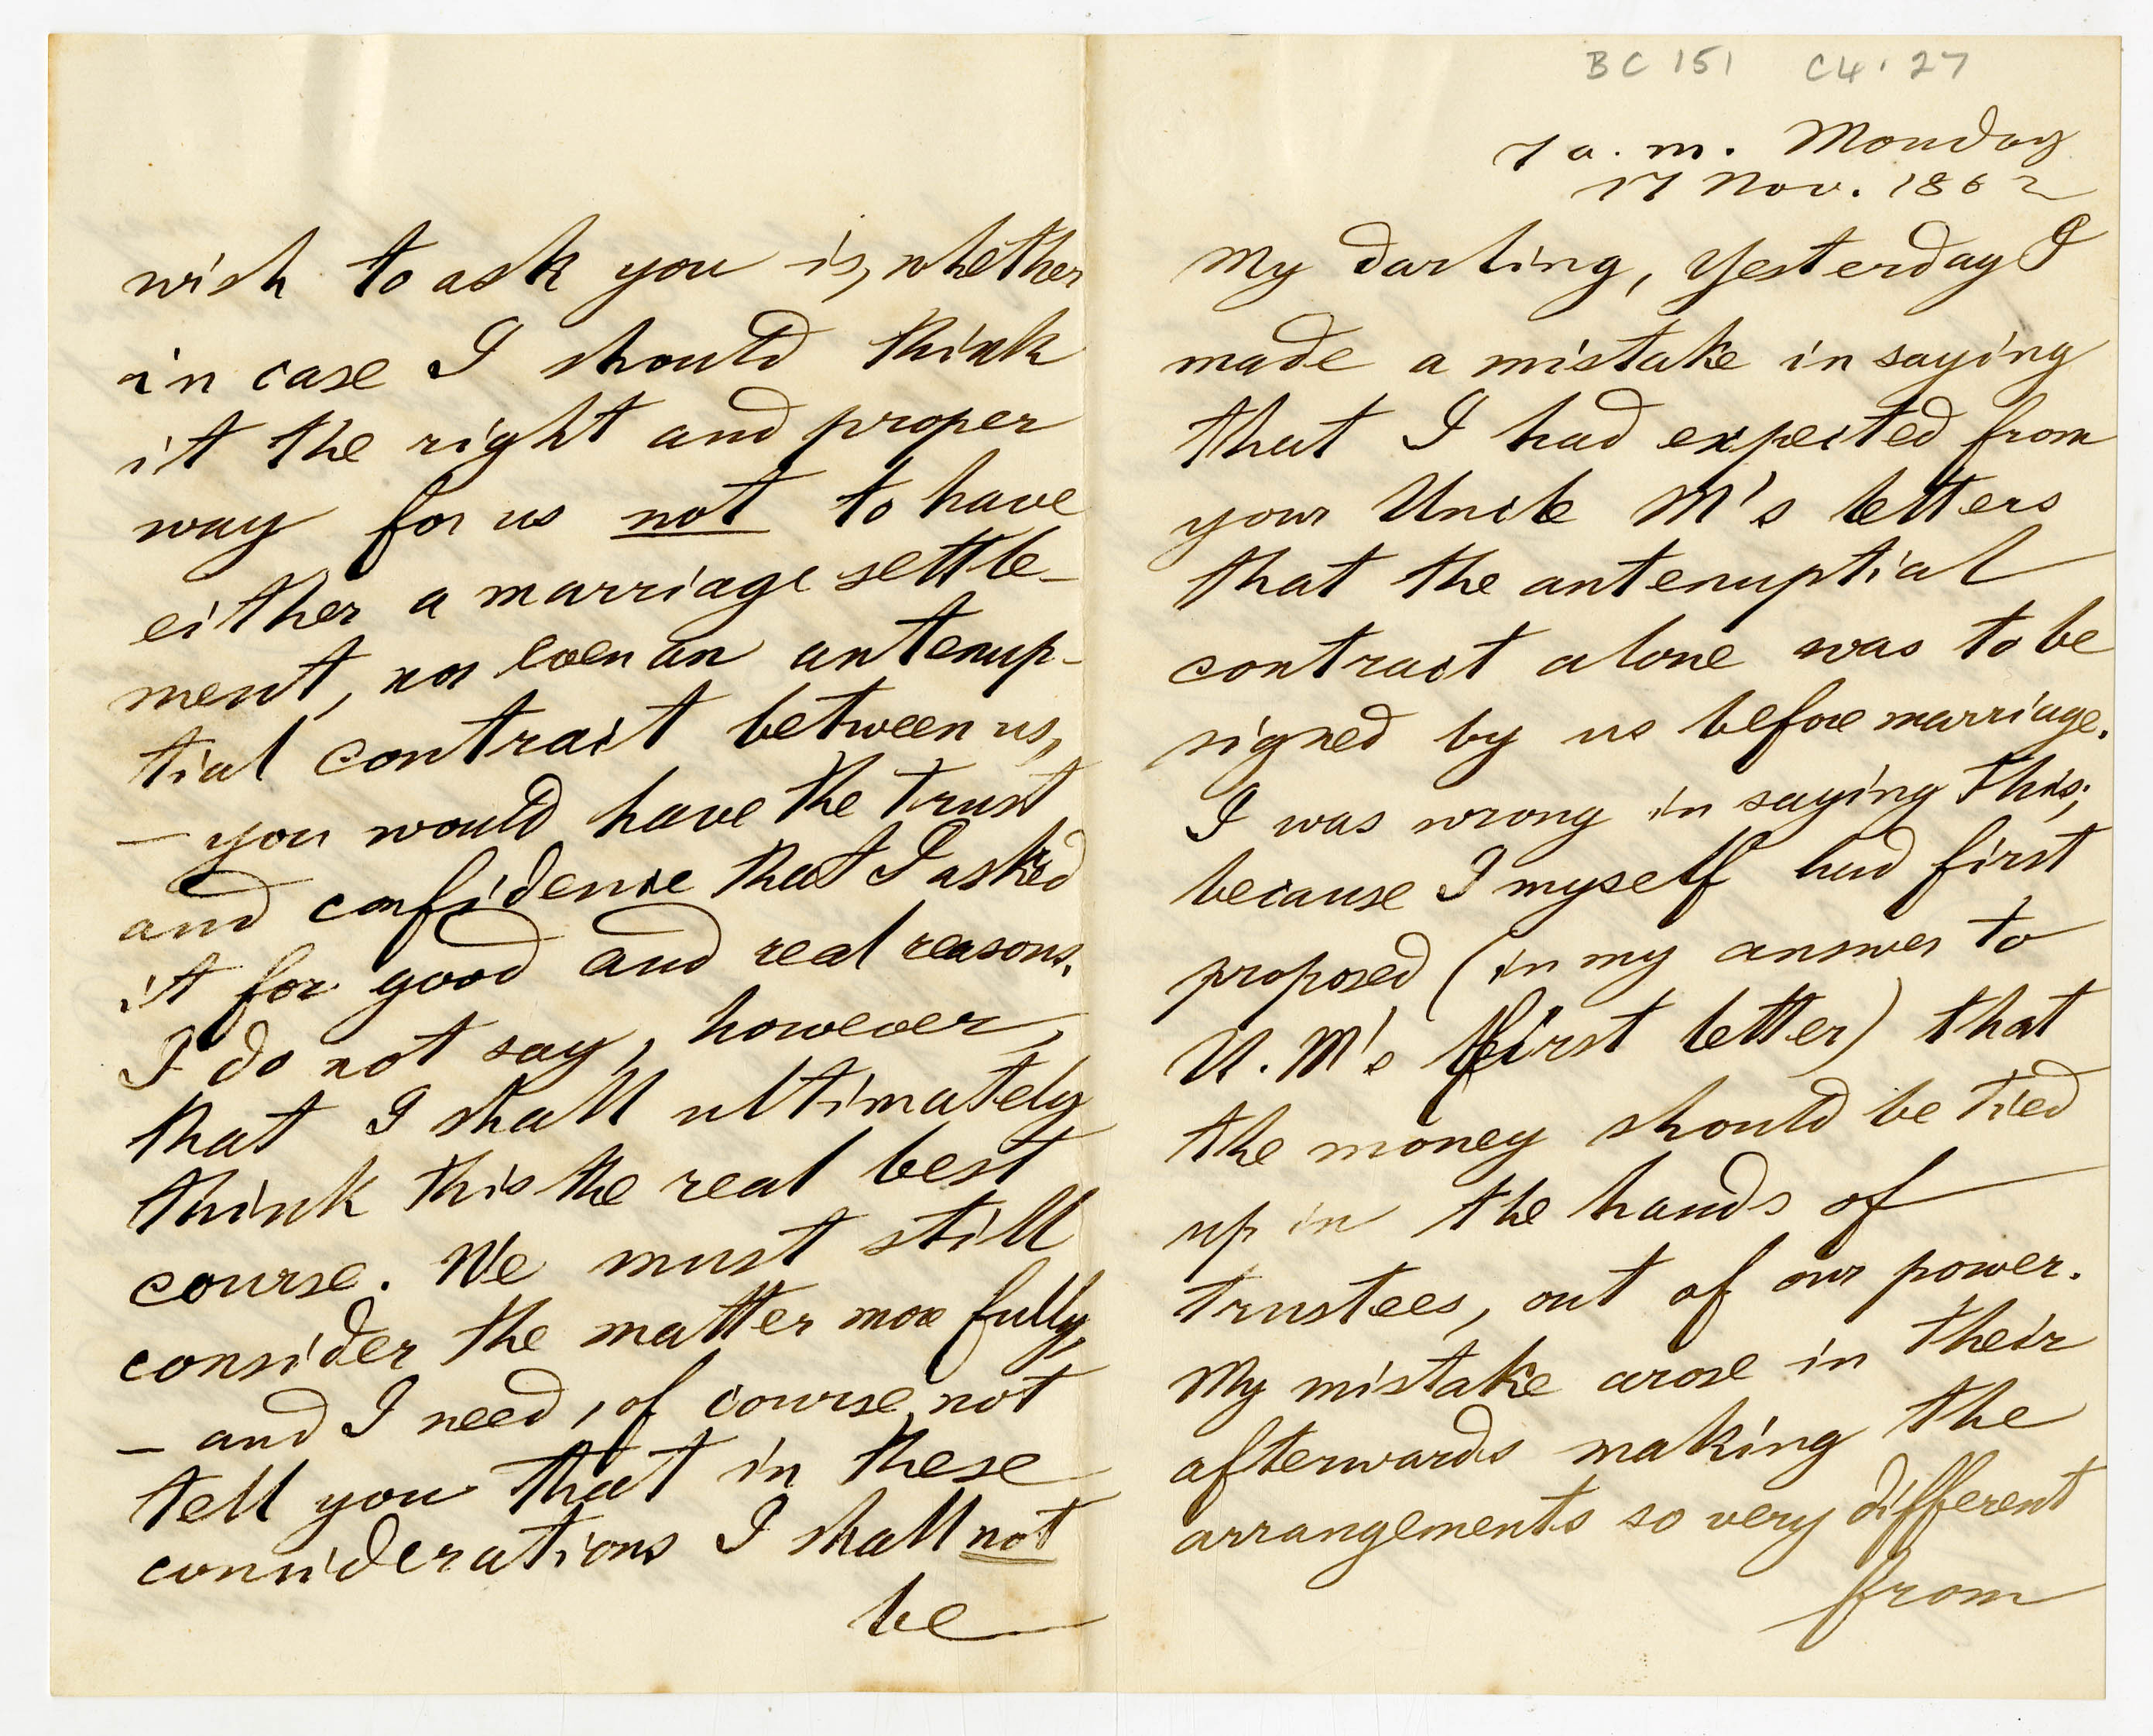 BC 151 C4.27
7 a.m. Monday
17 Nov. 1862
My darling, Yesterday I
made a mistake in saying
that I had expected from
your Uncle M's letters
that the antenuptial
contract alone was to be
signed by us before marriage.
I was wrong in saying this;
because I myself had first
proposed (in my answer to
U. M's first letter) that
the money should be tied
up in the hands of
trustees, out of our power.
My mistake arose in their
afterwards making the
arrangements so very different
from
wish to ask you is, whether
in case I should think
it the right and proper
way for us not to have
either a marriage settle-
ment, nor even an antenup-
tial contract between us,
— you would have the trust
and confidence that I asked
it for good and real reasons.
I do not say, however,
that I shall ultimately
think this the real best
course. We must still
consider the matter more fully,
— and I need, of course, not
tell you that in these
considerations I shall not
be